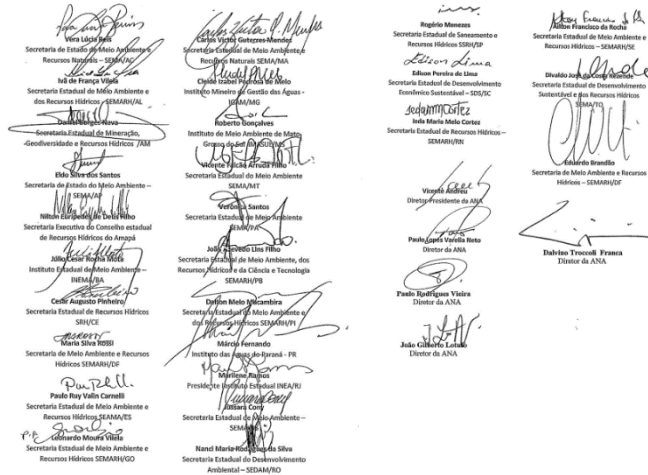 Vera Lúcia Reis
Secretaria de Estado de Meio Ambiente e
Recursos Naturais – SEMA/AC
Ivã de França Vilela
Secretaria Estadual de Meio Ambiente e
dos Recursos Hídricos – SEMARH/AL
Daniel Borges Nava
Secretaria Estadual de Mineração,
Geodiversidade e Recursos Hídricos /AM
Eldo Silva dos Santos
Secretaria de Estado do Meio Ambiente –
SEMA/AP
Nilton Eurípedes de Deus Filho
Secretaria Executiva do Conselho estadual
de Recursos Hídricos do Amapá
Júlio Cesar Rocha Mota
Instituto Estadual de Meio Ambiente –
INEMA/BA
Cesar Augusto Pinheiro
Secretaria Estadual de Recursos Hídricos
SRH/CE
Maria Silva Rossi
Secretaria de Meio Ambiente e Recursos
Hídricos SEMARH/DF
Paulo Ruy Valin Carnelli
Secretaria Estadual de Meio Ambiente e
Recursos Hídricos SEAMA/ES
P.P.
Leonardo Moura Vilela
Secretaria Estadual de Meio Ambiente e
Recursos Hídricos SEMARH/GO
Carlos Victor Guterres Mendes
Secretaria Estadual de Meio Ambiente e
Recursos Naturais SEMA/MA
Cleide Izabel Pedrosa de Melo
Instituto Mineiro de Gestão das Águas -
IGAM/MG
Roberto Gonçalves
Instituto de Meio Ambiente de Mato
Grosso do Sul IMASUL/MS
Vicente Falcão Arruda Filho
Secretaria Estadual do Meio Ambiente
SEMA/MT
Verônica Santos
Secretaria Estadual de Meio Ambiente
SEMA/PA
João Azevedo Lins Filho
Secretaria Estadual de Meio Ambiente, dos
Recursos Hídricos e da Ciência e Tecnologia
SEMARH/PB
Dalton Melo Macambira
Secretaria Estadual do Meio Ambiente e
dos Recursos Hídricos SEMARH/PI
Márcio Fernando
Instituto das Águas do Paraná - PR
Marilene Ramos
Presidente Instituto Estadual INEA/RJ
Jussara Cony
Secretaria Estadual de Meio Ambiente -
Nanci Maria Rodrigues da Silva
Secretaria Estadual do Desenvolvimento
Ambiental – SEDAM/RO
Rogério Menezes
Secretaria Estadual de Saneamento e
Recursos Hídricos SSRH/SP
Edison Lima
Edison Pereira de Lima
Secretaria Estadual de Desenvolvimento
Econômico Sustentável – SDS/SC
Ieda M Cortez
Ieda Maria Melo Cortez
Secretaria Estadual de Recursos Hídricos –
SEMARH/RN
Vicente Andreu
Diretor-Presidente da ANA
Paulo Lopes Varella Neto
Diretor da ANA
Paulo Rodrigues Vieira
Diretor da ANA
João Gilberto Lotufo
Diretor da ANA
Ailton Francisco da Rocha
Secretaria Estadual de Meio Ambiente e
Recursos Hídricos – SEMARH/SE
Divaldo José da Costa Rezende
Secretaria Estadual de Desenvolvimento
Sustentável e dos Recursos Hídricos
SEMA/TO
Eduardo Brandão
Secretaria Estadual de Meio Ambiente e Recursos
Hídricos – SEMARH/DF
Dalvino Troccoli Franca
Diretor da ANA